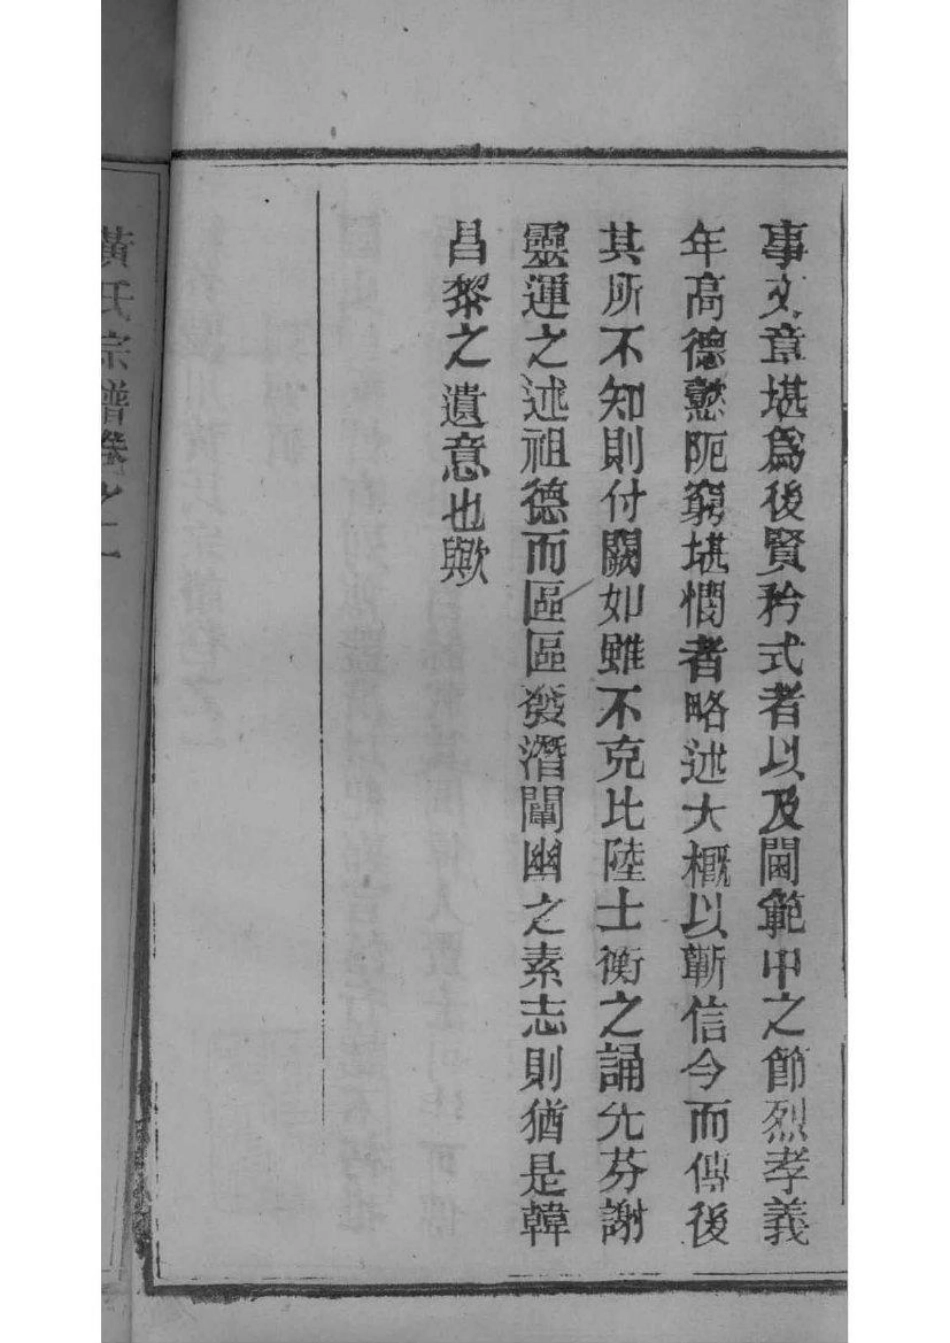 事文章堪爲後賢矜式者以及閫範中之節烈孝義
年高德懋阨窮堪憫者略述大概以蘄信今而傳後
其所不知則付闕如雖不克比陸士衡之誦先芬謝
靈運之述祖德而區區發潛闡幽之素志則猶是韓
昌黎之遺意也歟
黃氏宗譜卷之二